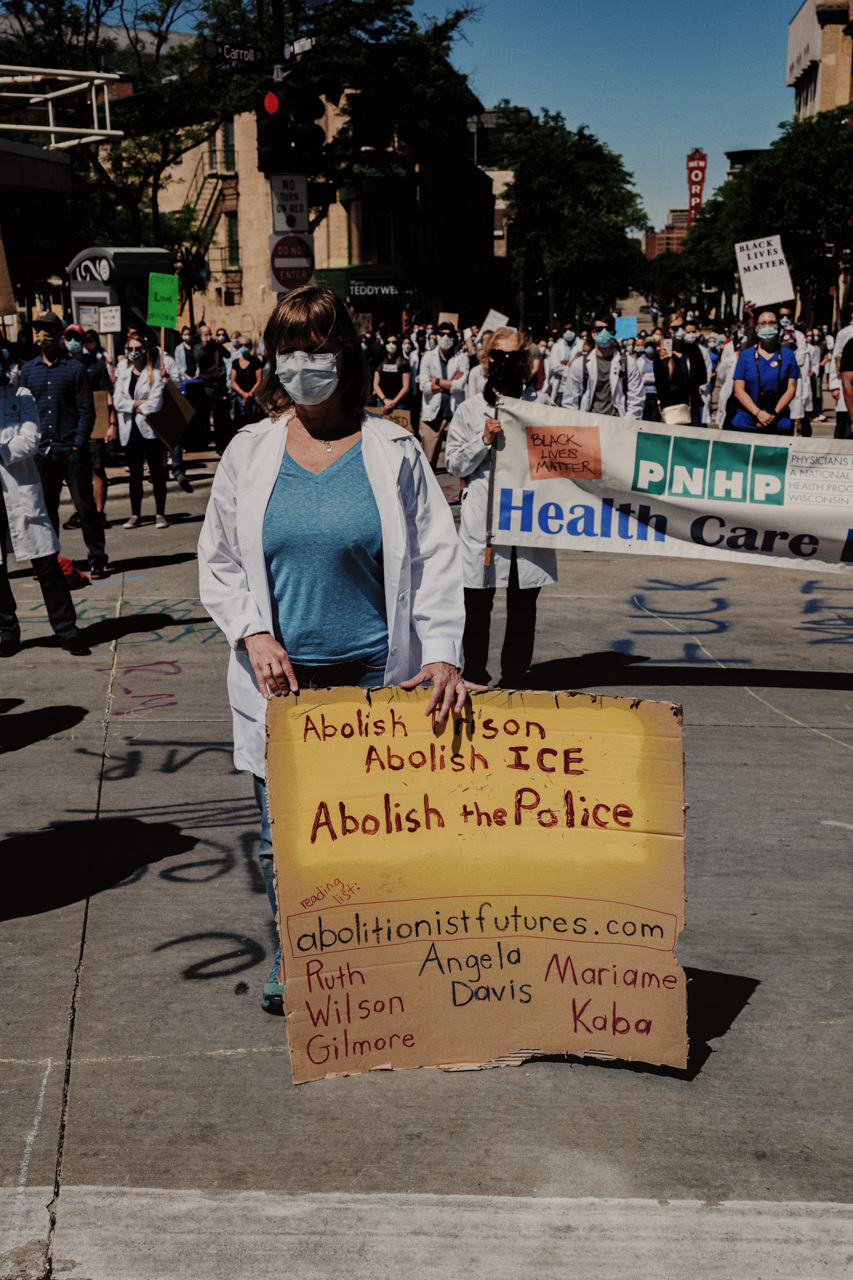 Carroll
NO
TURN
ON RED
DO NOT
ENTER
NEW
ORP
TEDDYWE
BLACK
LIVES
MATTER
LOVE
BLACK
LIVES
MATTER
PNHP
PHYSICIANS
A NATIONAL
HEALTH PRO
WISCONSIN
Health Care
Abolish Prison
Abolish ICE
Abolish the Police
reading
list:
abolitionistfutures.com
Ruth
Wilson
Gilmore
Angela
Davis
Mariame
Kaba